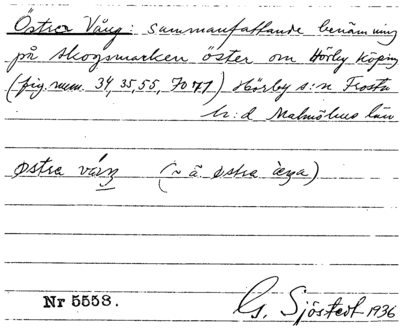 Östra Vång: sammanfattande benämning
på skogsmarken öster om Hörby köping
(fig. num. 34, 35, 55, 70 71) Hörby s:n Frosta
h:d Malmöhus län
østra våŋ (~ å østra
Nr 5558. G. Sjöstedt 1936